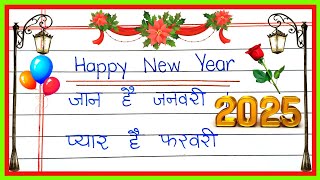 Happy New Year
जान है जनवरी
2025
प्यार है फरवरी